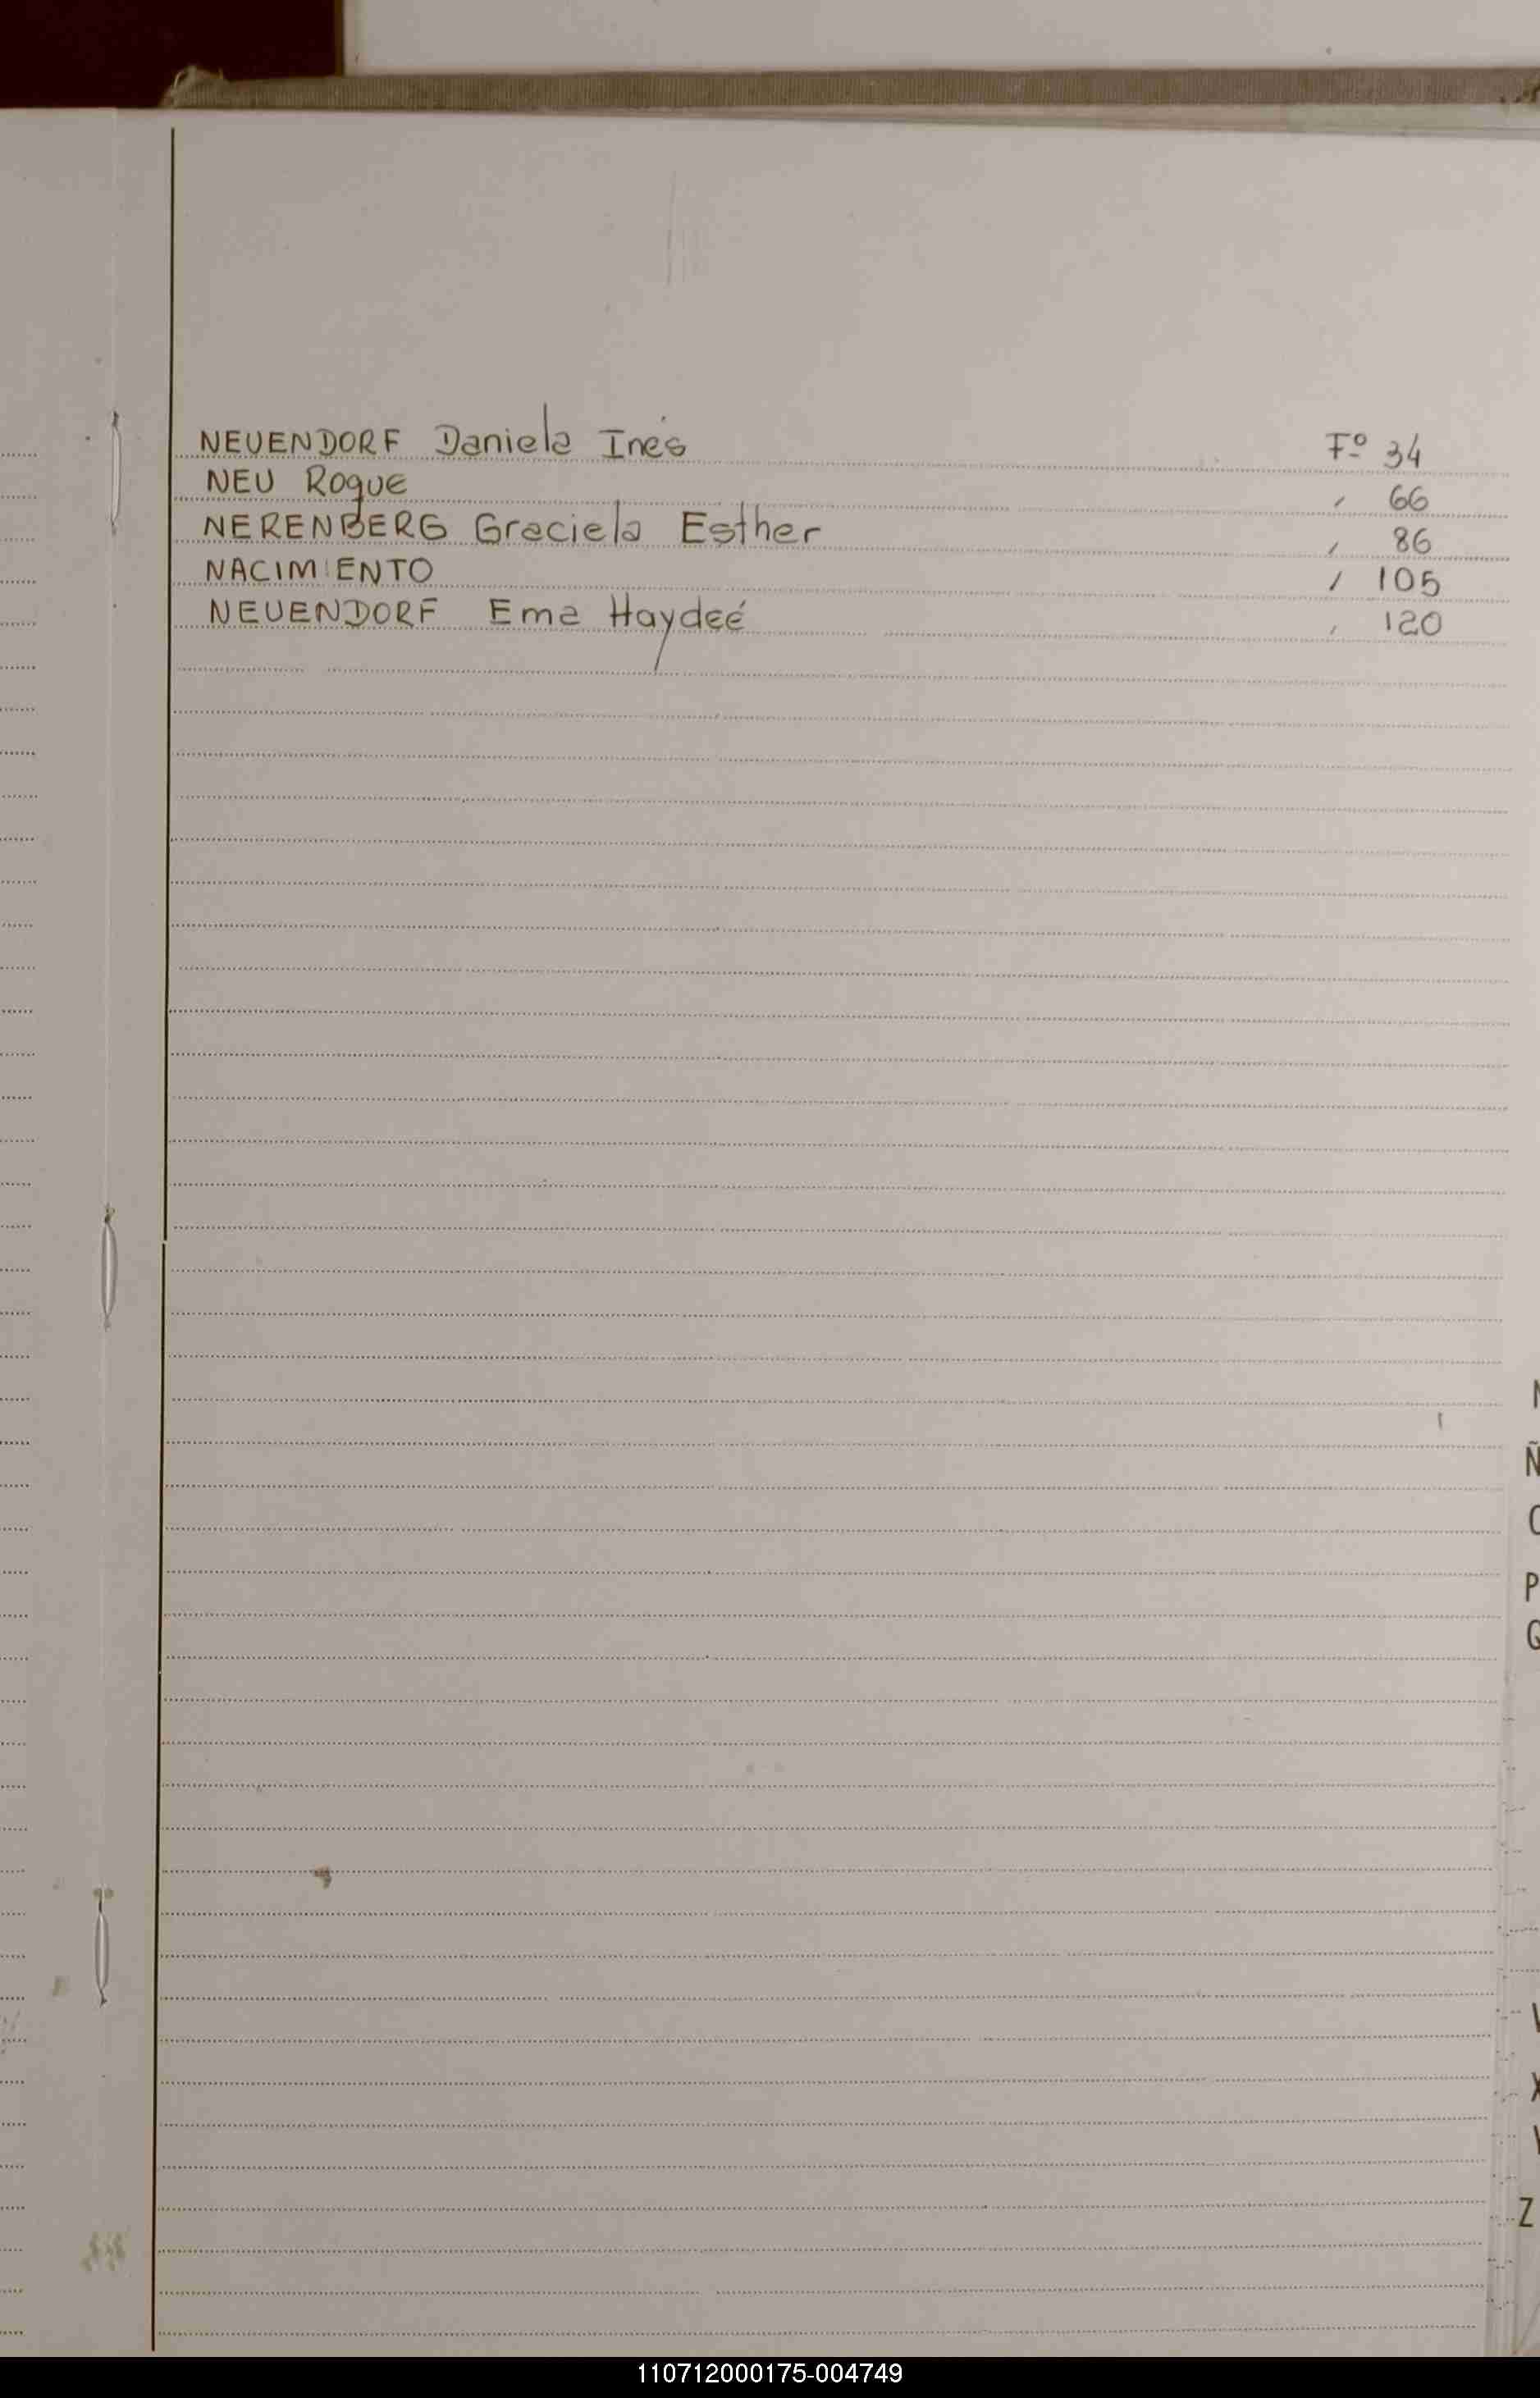 NEUENDORF Daniela Inés Fº 34
NEU Roque , 66
NERENBERG Graciela Esther , 86
NACIMIENTO , 105
NEUENDORF Ema Haydeé , 120
Ñ
P
Z
110712000175-004749